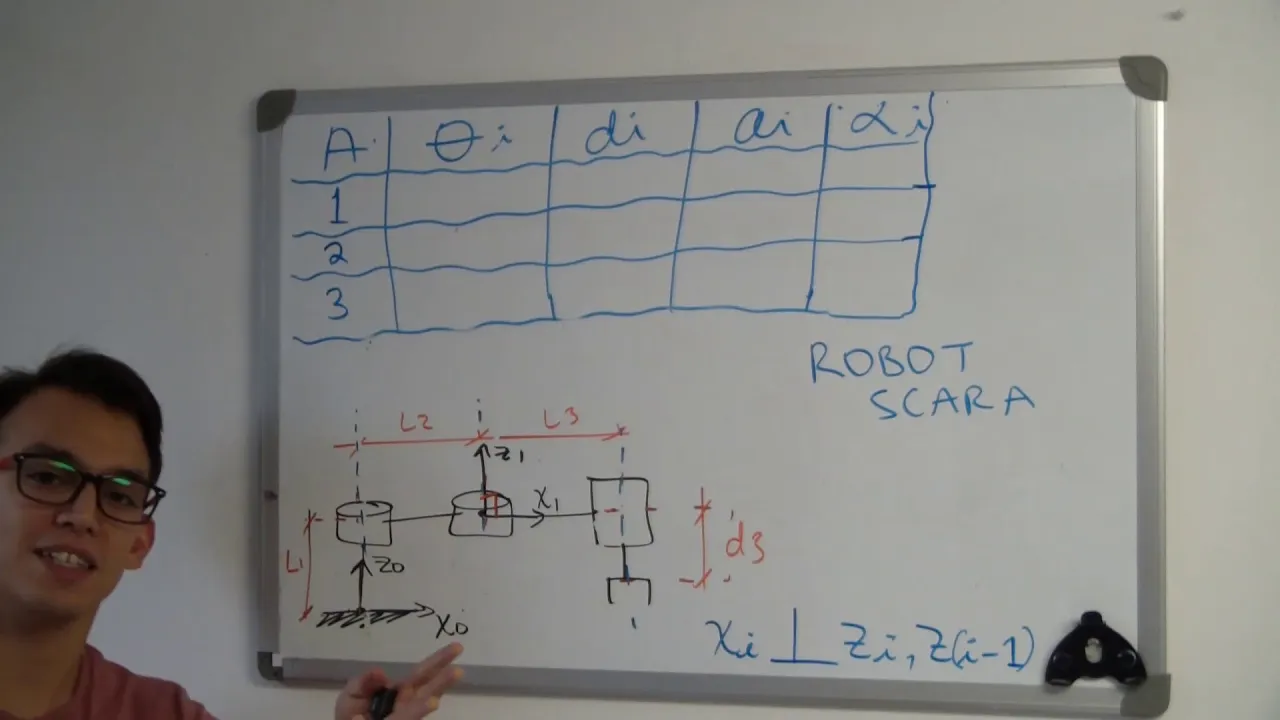 A θi di ai αi
1
2
3
ROBOT
SCARA
L2 L3
z1
x1
L1
z0
d3
x0
xi ⊥ zi, z(i-1)